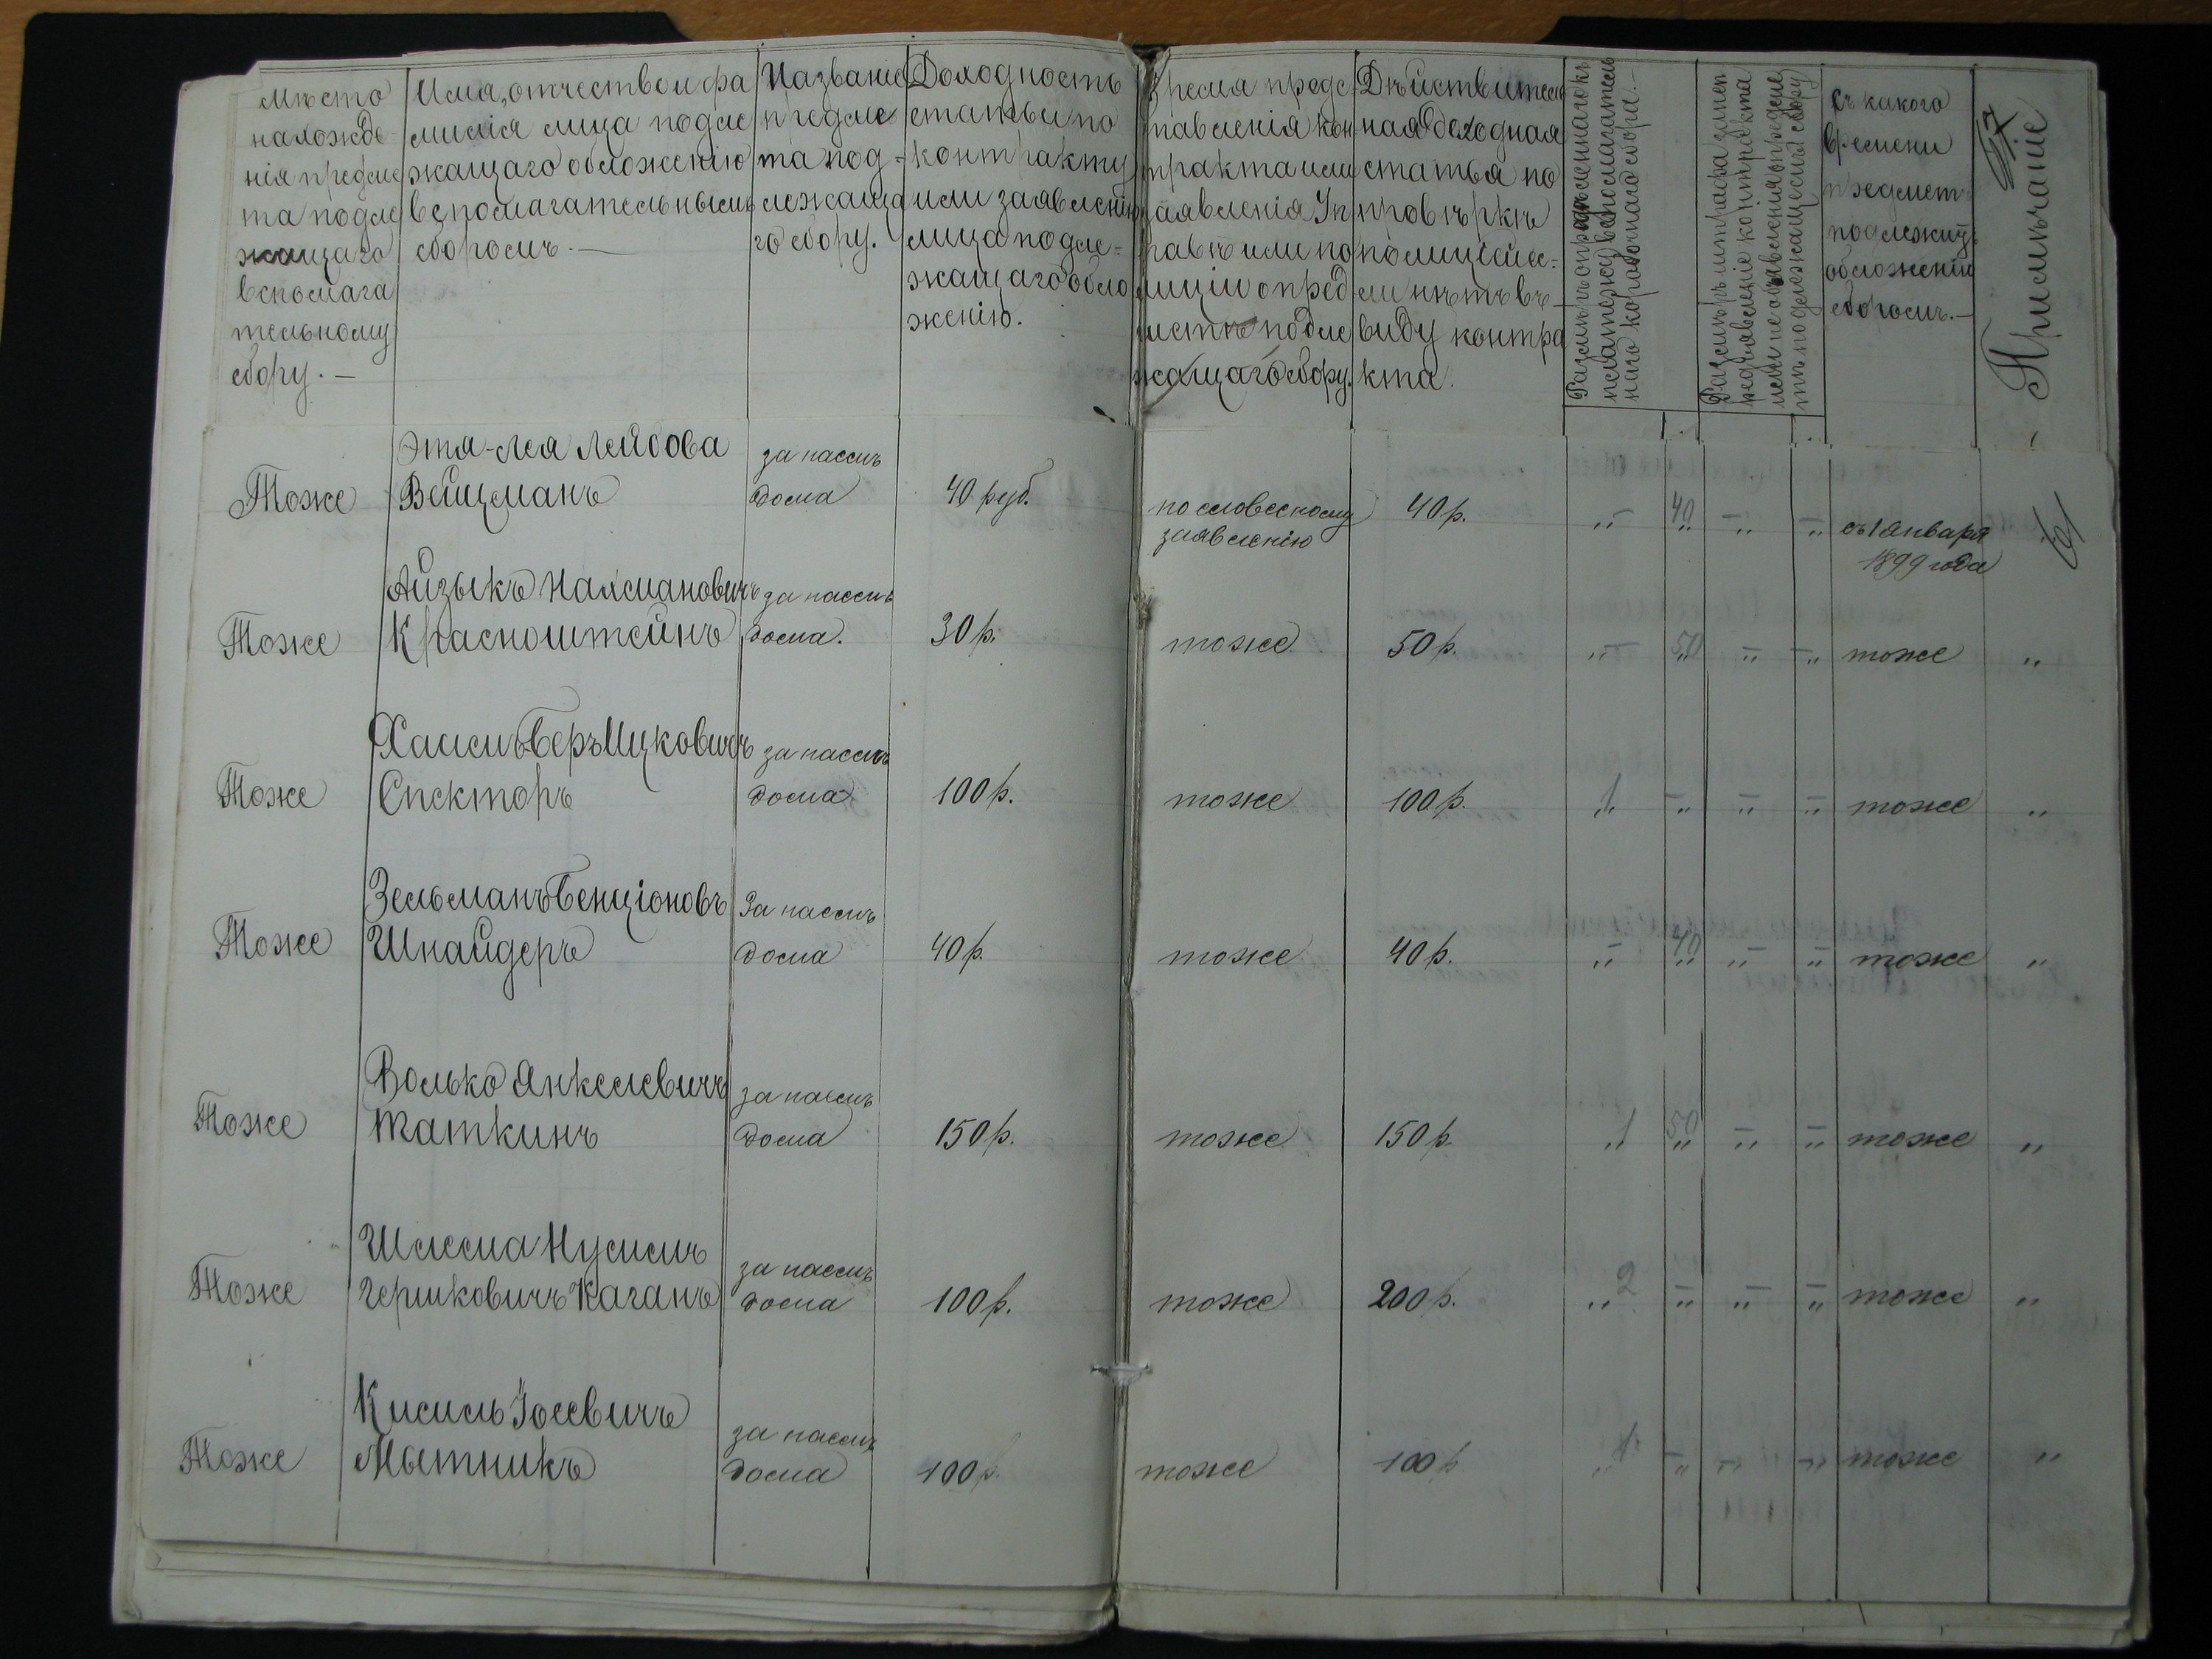 Мѣсто
нахожде-
нія предме
та подле
жащаго
вспомага
тельному
сбору. —
Имя, отчество и фа
милія лица подле
жащаго обложенію
вспомагательнымъ
сборомъ. —
Названіе
предме
та под-
лежаща
го сбору.
Доходность
статьи по
контракту
или заявленію
лица подле-
жащаго обло
женію.
Время предс
тавленія кон-
тракта или
заявленія Уп
равѣ или по
лиціи опред
мѣстѣ подле
жащаго сбору.
Дѣйствитель
ная доходная
статья по
провѣркѣ
полиціей е-
сли нѣтъ въ
виду контра
кта.
Размѣръ опредѣленнаго къ
платежу вспомагатель
наго коробочнаго сбора. —
Размѣръ штрафа за неп
редъявленіе контракта
подлежащества сбору
съ какого
времени
предмет
подлежитъ
обложенію
сборомъ. —
Примѣчаніе
Тоже
Этя-Лея Лейбова
Вейцманъ
за насмъ
дома
40 руб.
по словесному
заявленію
40 р.
„ — 40 „ — „ — „
съ 1 Января
1899 года
Тоже
Айзыкъ Нахмановичъ
Красноштейнъ
за насмъ
дома.
30 р.
тоже
50 р.
„ — 50 „ — „ — „
тоже
„
Тоже
Хаимъ Беръ Ицковичъ
Спекторъ
за насмъ
дома
100 р.
тоже
100 р.
1 „ — „ — „ — „
тоже
„
Тоже
Зельманъ Бенціоновъ
Шнайдеръ
За насмъ
дома
40 р.
тоже
40 р.
„ — 40 „ — „ — „
тоже
„
Тоже
Волько Янкелевичъ
Таткинъ
за насмъ
дома
150 р.
тоже
150 р.
„ 1 50 „ — „ — „
тоже
„
Тоже
Шлема Нусимъ
Гершковичъ Каганъ
за насмъ
дома
100 р.
тоже
200 р.
„ 2 — „ — „ — „
тоже
„
Тоже
Кисиль Іосевичъ
Мытникъ
за насмъ
дома
100 р.
тоже
100 р
„ 1 — „ — „ — „
тоже
„